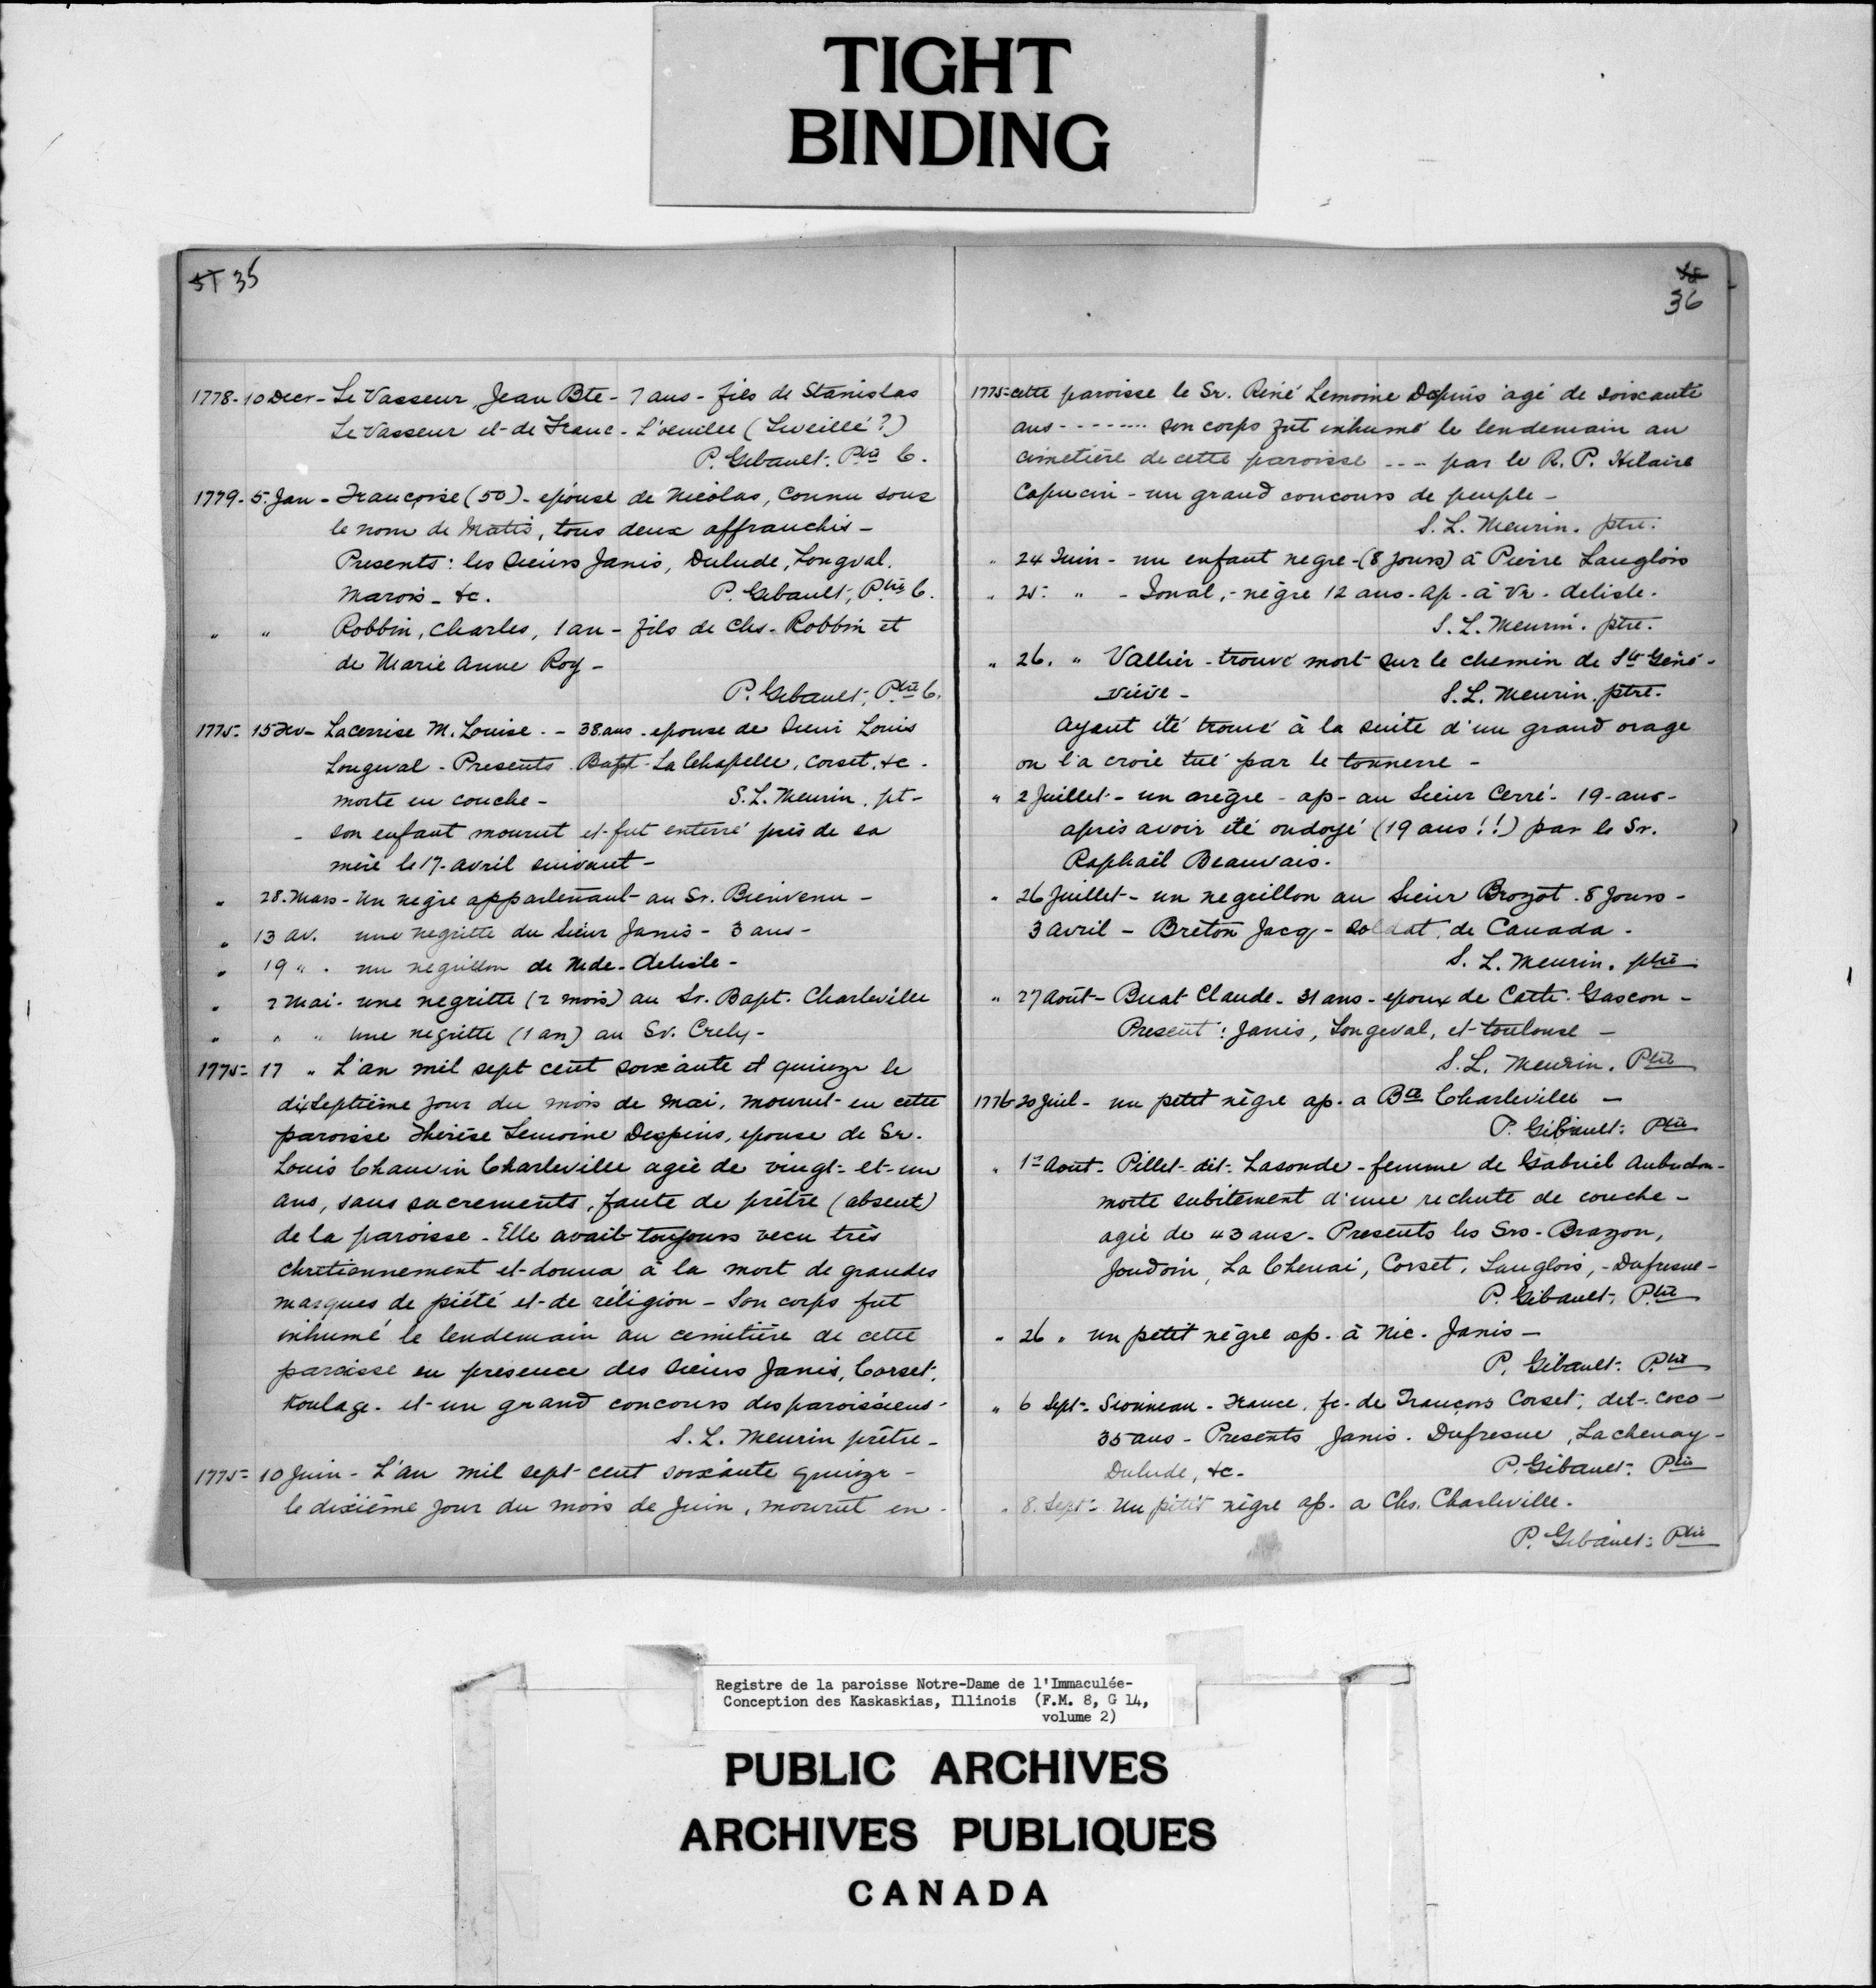 TIGHT
BINDING
35
1778-10 Decr - Le Vasseur, Jean Bte - 7 ans - fils de Stanislas
Le Vasseur et de Franc - L'veuilee (Leveillé?)
P. Gibault. Ptre C.
1779-5. Jan - Françoise (50) - epouse de Nicolas, connu sous
le nom de Matis, tous deux affranchis -
Presents: les Sieurs Janis, Dulude, Longval.
Marois - &c. P. Gibault, Ptre C.
" " Robbin, Charles, 1 an - fils de Chs. Robbin et
de Marie Anne Roy -
P. Gibault, Ptre C.
1775- 15 Fev - Lacerise M. Louise - 38 ans - epouse de Sieur Louis
Longeval - Presents Bapt - La Chapelle, Corset, &c -
morte en couche - S. L. Meurin, pt -
- son enfant mourut et fut enterré près de sa
mère le 17 avril suivant -
" 28. Mars - Un negre appartenant au Sr. Bienvenu -
" 13 av. une negritte du Sieur Janis - 3 ans -
" 19 " . un negrillon de Mde. Delisle -
" 2 Mai - une negritte (2 mois) au Sr. Bapt. Charleville
" " " une negritte (1 an) au Sr. Crely -
1775- 17 " L'an mil sept cent soixante et quinze le
dixseptième jour du mois de mai, mourut en cette
paroisse Thérèse Lemoine Despins, epouse de Sr.
Louis Chauvin Charleville agée de vingt-et-un
ans, sans sacrements, faute de prêtre (absent)
de la paroisse - Elle avait toujours vecu très
chretiennement et donna à la mort de grandes
marques de piété et de réligion - Son corps fut
inhumé le lendemain au cemitière de cette
paroisse en presence des Sieurs Janis, Corset,
Koulage - et un grand concours des paroissiens -
S. L. Meurin prêtre -
1775- 10 Juin - L'an mil sept cent soixante quinze -
le dixième jour du mois de Juin, mourut en -
36
1775- cette paroisse le Sr. Réné Lemoine Depins agé de soixante
ans - - - - - - - - son corps fut inhumé le lendemain au
cimetière de cette paroisse - - - - par le R. P. Hilaire
Capucin - un grand concours de peuple -
S. L. Meurin. ptre.
" 24 Juin - un enfant negre - (8 jours) à Pierre Langlois
" 25 " - Jonal, - nègre 12 ans - ap - à Ve - delisle -
S. L. Meurin. ptre.
" 26. " Vallier - trouvé mort sur le chemin de Ste Géné-
viève - S. L. Meurin. ptre.
Ayant été trouvé à la suite d'un grand orage
on l'a croie tué par le tonnerre -
" 2 Juillet - un nègre - ap - au Sieur Cerré - 19 - ans -
après avoir été ondoyé (19 ans!!) par le Sr.
Raphaël Beauvais.
" 26 Juillet - un negrillon au Sieur Brozot. 8 jours -
3 avril - Breton Jacq - soldat, de Canada -
S. L. Meurin. ptre
" 27 août - Buat Claude - 31 ans - epoux de Cath. Gascon -
Present: Janis, Longeval, et toulouse -
S. L. Meurin. Ptre
1776 20 Juil - un petit nègre ap. a Bte Charleville -
P. Gibault: Ptre
" 1er Aout - Pillet dit: Lasonde - femme de Gabriel Aubuchon -
morte subitement d'une rechute de couche -
agée de 43 ans - Presents les Srs - Brazon,
Joudoin, La Chenai, Corset, Langlois, - Dufresne -
P. Gibault: Ptre
" 26 " un petit nègre ap. à Nic. Janis -
P. Gibault: Ptre
" 6 Sept - Sionneau - France. fe - de François Corset, dit - coco -
35 ans - Presents Janis. Dufresne, Lachenay -
Dulude, &c - P. Gibault: Ptre
" 8. Sept - Un petit nègre ap. a Chs. Charleville.
P. Gibault: Ptre
Registre de la paroisse Notre-Dame de l'Immaculée-
Conception des Kaskaskias, Illinois (F.M. 8, G 14,
volume 2)
PUBLIC ARCHIVES
ARCHIVES PUBLIQUES
CANADA